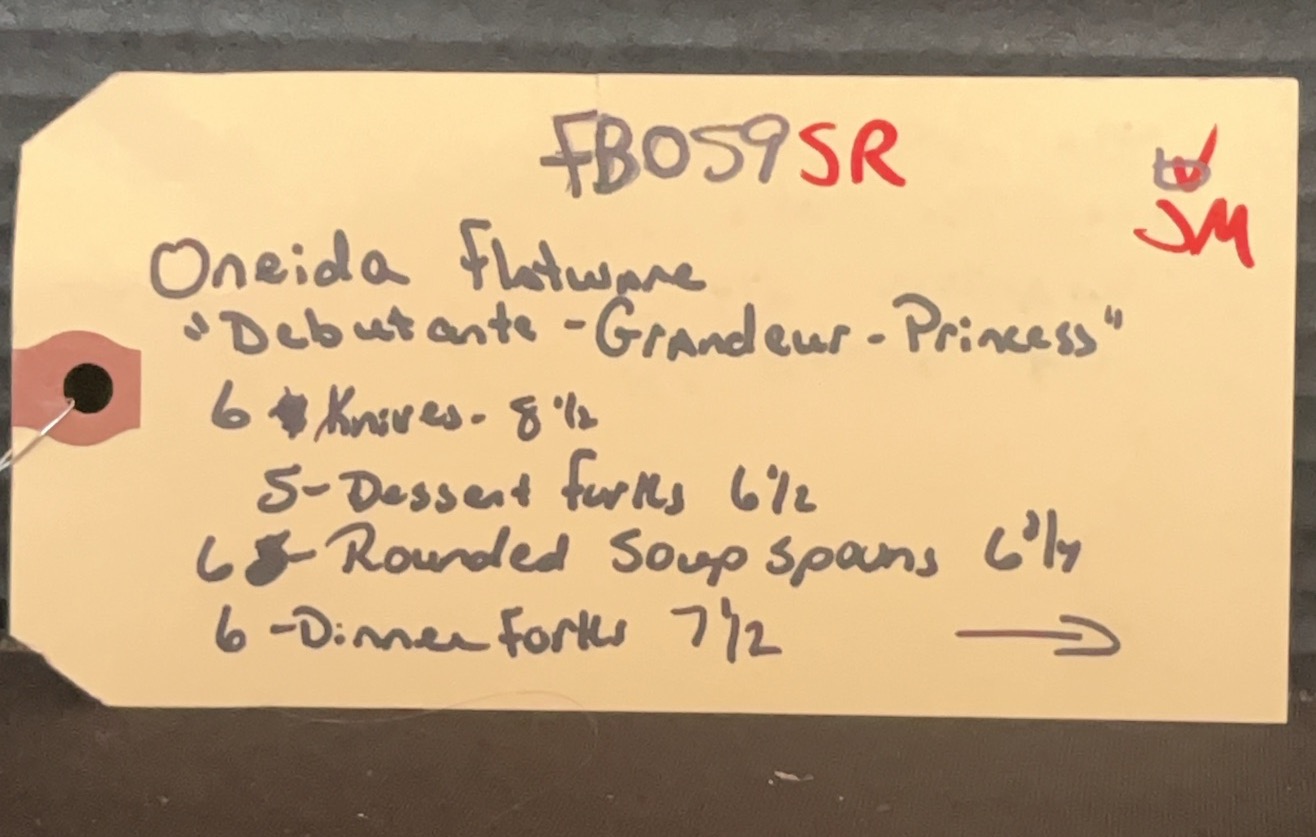 FB059SR
JM
Oneida Flatware
"Debutante - Grandeur - Princess"
6 Knives - 8 1/2
5 - Dessert forks 6 1/2
6 - Rounded Soup spoons 6 3/4
6 - Dinner Forks 7 1/2 →